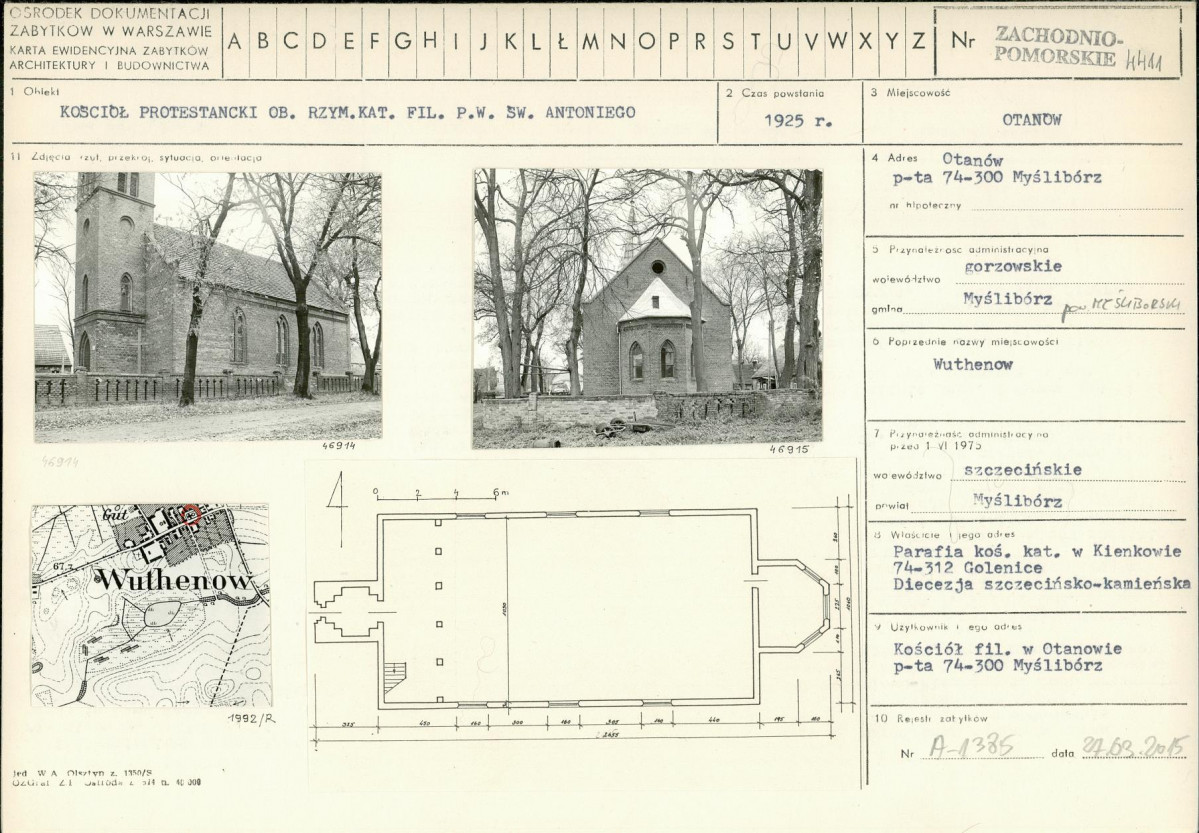 OŚRODEK DOKUMENTACJI
ZABYTKÓW W WARSZAWIE
KARTA EWIDENCYJNA ZABYTKÓW
ARCHITEKTURY I BUDOWNICTWA
A B C D E F G H I J K L Ł M N O P R S T U V W X Y Z
Nr ZACHODNIO-
POMORSKIE 4411
1 Obiekt
KOŚCIÓŁ PROTESTANCKI OB. RZYM.KAT. FIL. P.W. ŚW. ANTONIEGO
2 Czas powstania
1925 r.
3 Miejscowość
OTANÓW
11 Zdjęcia rzut, przekrój, sytuacja, orientacja
46914
46914
46915
4 Adres Otanów
p-ta 74-300 Myślibórz
nr hipoteczny
5 Przynależność administracyjna
województwo gorzowskie
gmina Myślibórz pow. MYŚLIBORSKI
6 Poprzednie nazwy miejscowości
Wuthenow
7 Przynależność administracyjna
przed 1 VI 1975
województwo szczecińskie
powiat Myślibórz
8 Właściciel i jego adres
Parafia koś. kat. w Kienkowie
74-312 Golenice
Diecezja szczecińsko-kamieńska
9 Użytkownik i jego adres
Kościół fil. w Otanowie
p-ta 74-300 Myślibórz
10 Rejestr zabytków
Nr A-1385 data 27.03.2015
Gut
67.3
Wuthenow
1992/R
0 2 4 6 m
325 450 160 300 160 305 160 440 195 160
2655